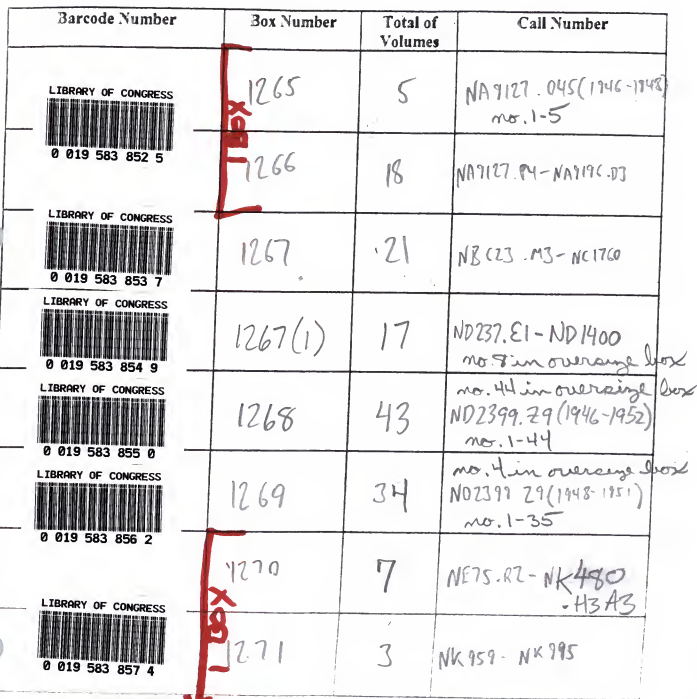 Barcode Number Box Number Total of Volumes Call Number
LIBRARY OF CONGRESS
0 019 583 852 5
1 BOX
1265 5 NA9127.O45(1946-1948)
no. 1-5
1266 18 NA9127.P4-NA9196.D3
LIBRARY OF CONGRESS
0 019 583 853 7
1267 21 NB C23 .M3-NC1760
LIBRARY OF CONGRESS
0 019 583 854 9
1267(1) 17 ND237.E1-ND1400
no. 8 in oversize box
LIBRARY OF CONGRESS
0 019 583 855 0
no. 44 in oversize box
1268 43 ND2399.Z9(1946-1952)
no. 1-44
LIBRARY OF CONGRESS
0 019 583 856 2
no. 4 in oversize box
1269 34 ND2399 Z9(1948-1951)
no. 1-35
1 BOX
1270 7 NE75.R2-NK480
.H3A3
LIBRARY OF CONGRESS
0 019 583 857 4
1271 3 NK959-NK995